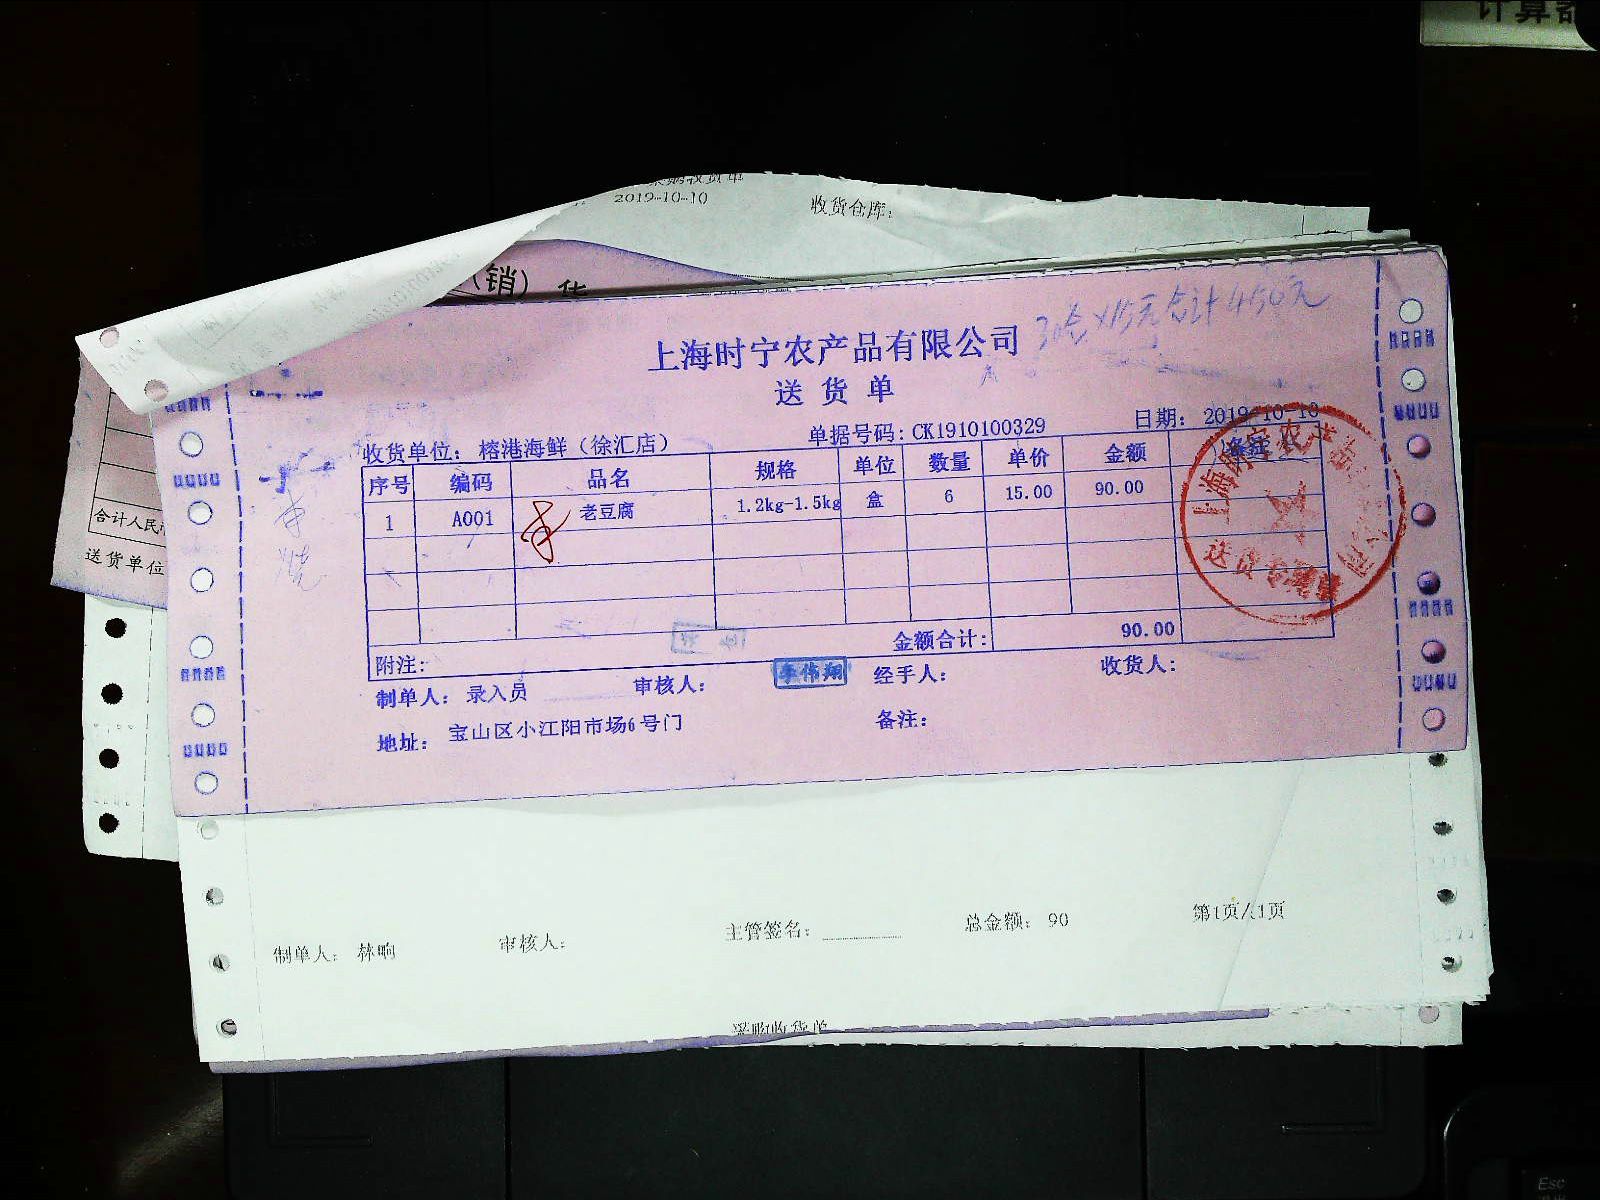 计算器
2019-10-10
收货仓库：
（销）货
30盒×15元合计450元
上海时宁农产品有限公司
送货单
收货单位：榕港海鲜（徐汇店）
单据号码：CK1910100329
日期：2019-10-10
序号 编码 品名 规格 单位 数量 单价 金额 备注
1 A001 老豆腐 1.2kg-1.5kg 盒 6 15.00 90.00
金额合计： 90.00
附注：
制单人：录入员 审核人： 李伟翔 经手人： 收货人：
地址：宝山区小江阳市场6号门 备注：
上海时宁农产品有限公司
送货专用章
合计人民
送货单位
制单人：林响 审核人： 主管签名： 总金额：90 第1页/1页
采购收货单
Esc